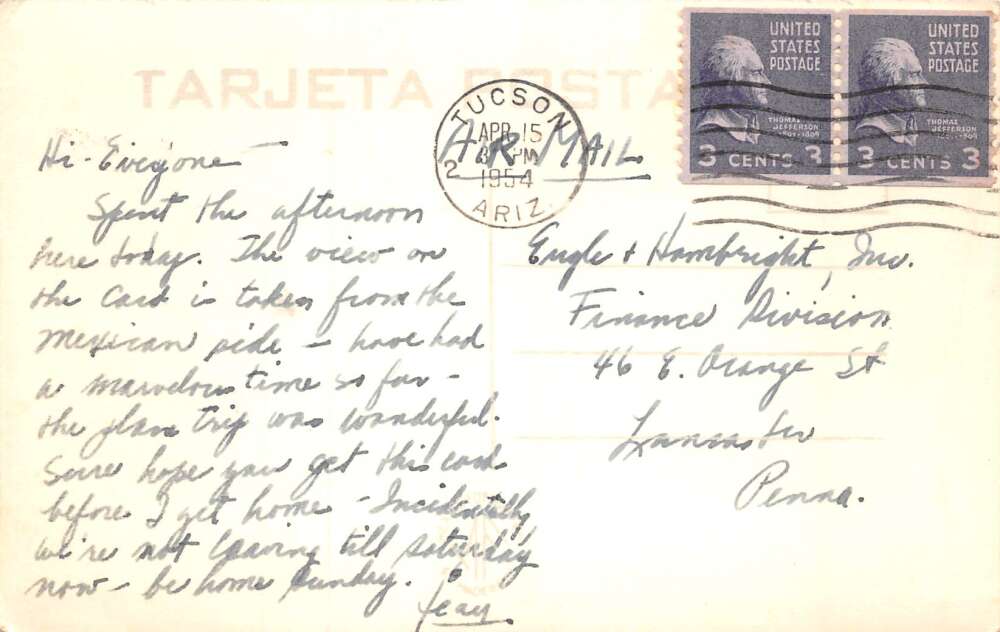 TARJETA POSTAL
UNITED
STATES
POSTAGE
THOMAS
JEFFERSON
1801-1809
3 CENTS 3
UNITED
STATES
POSTAGE
THOMAS
JEFFERSON
1801-1809
3 CENTS 3
TUCSON
APR 15
PM
2
1954
ARIZ.
AIR MAIL
Hi-Everyone-
Spent the afternoon
here today. The view on
the card is taken from the
Mexican side - have had
a marvelous time so far -
the plane trip was wonderful.
Sure hope you get this card
before I get home - Incidentally,
we're not leaving till Saturday
now - be home Sunday.
Jean
Engle & Hambright, Inc.
Finance Division
46 E. Orange St
Lancaster
Penna.